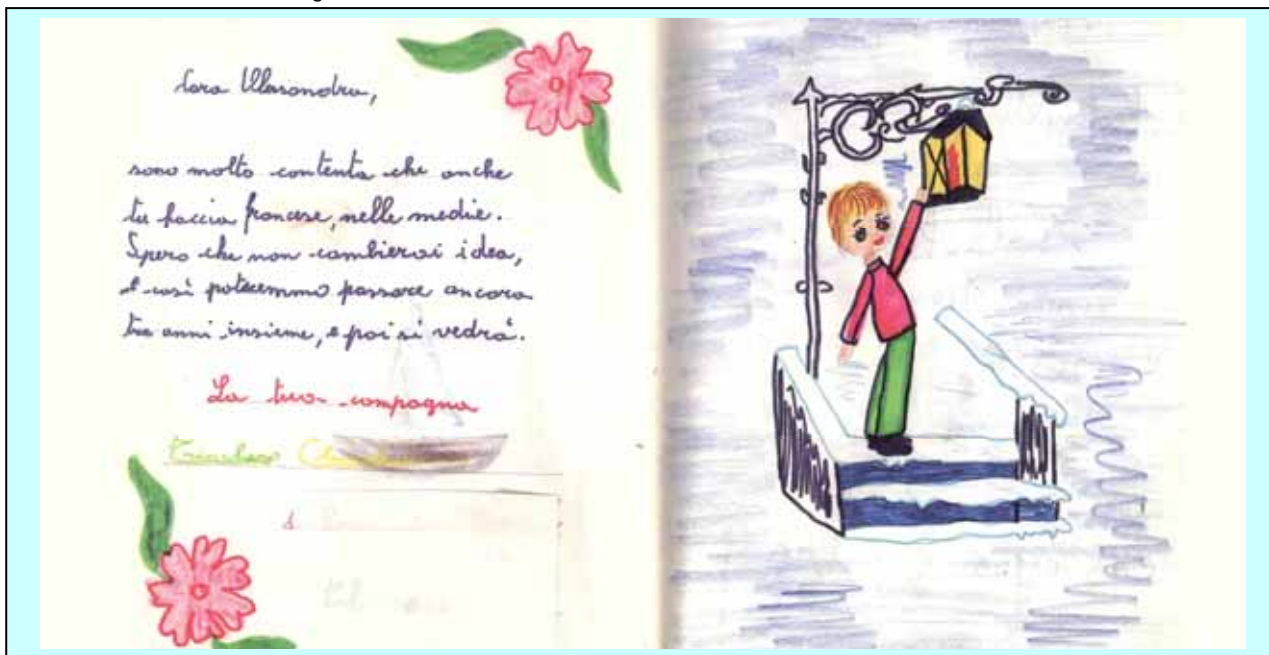 Cara Alessandra,
sono molto contenta che anche
tu faccia francese, nelle medie.
Spero che non cambierai idea,
e così potremmo passare ancora
tre anni insieme, e poi si vedrà.
La tua compagna